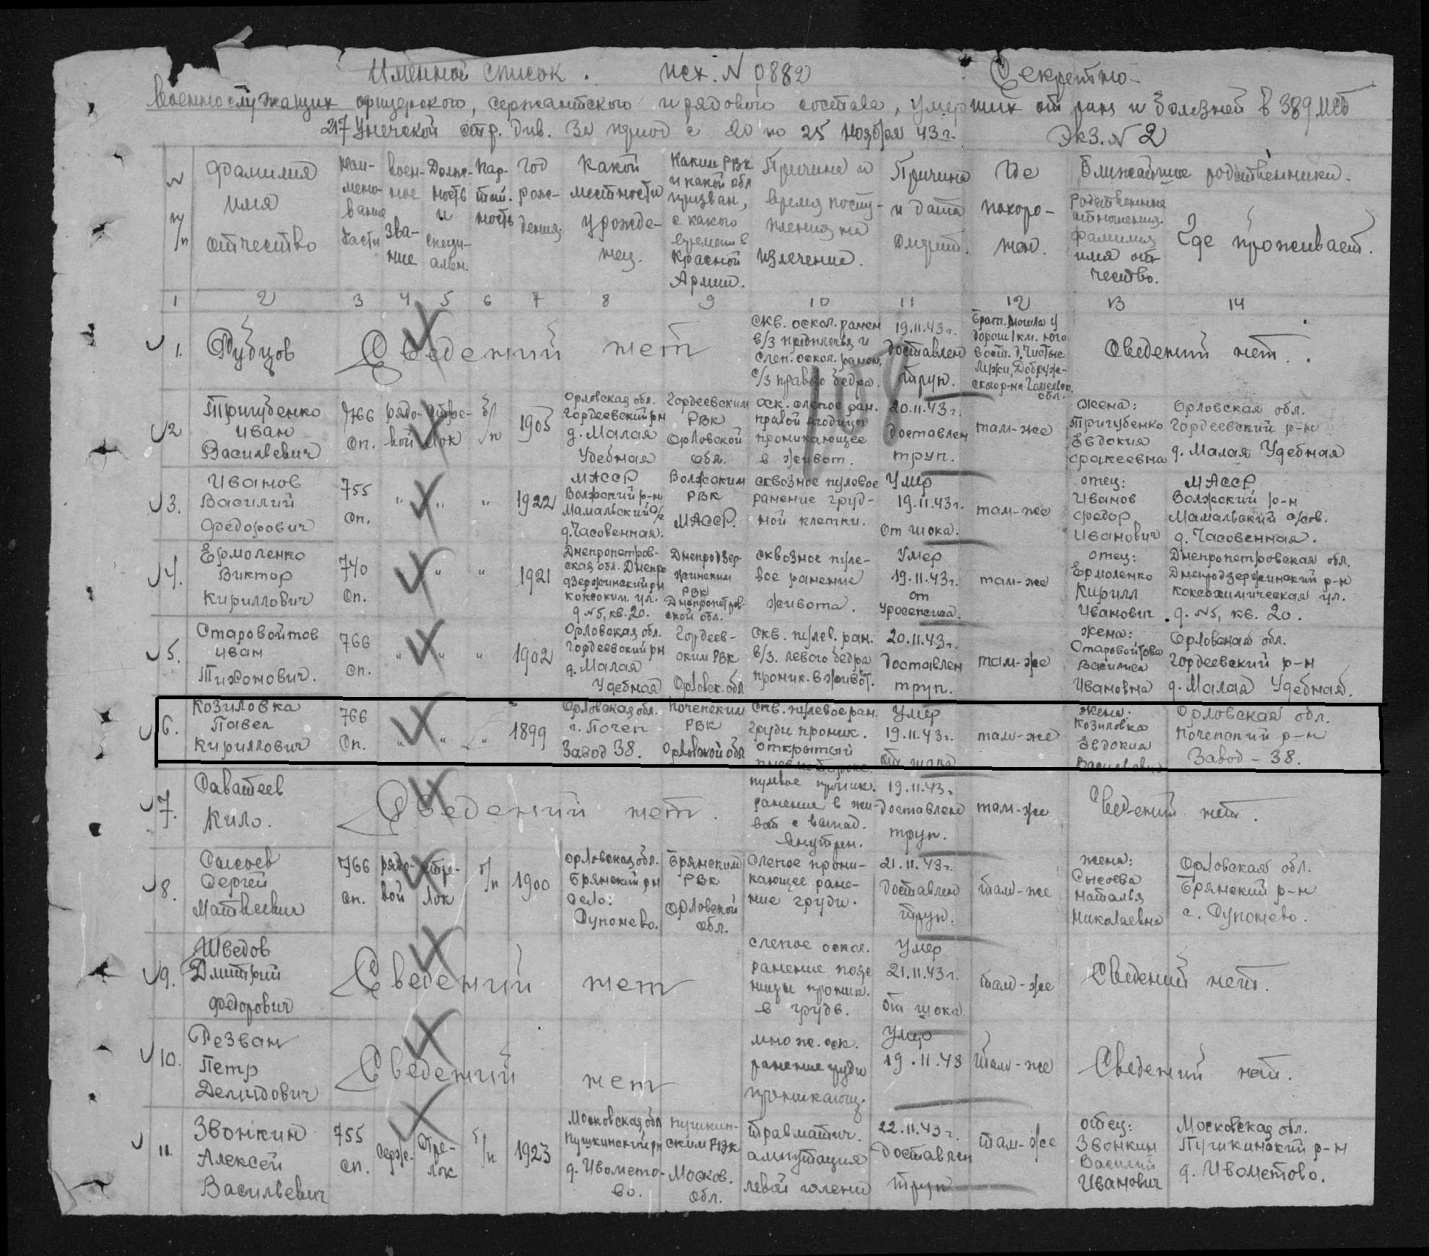 Именной список. исх. N 0882 Секретно
Военнослужащих офицерского, сержантского и рядового состава, умерших от ран и болезней в 389 МСБ
217 Унечской стр. див. за период с 20 по 25 ноября 43 г. Экз. N 2
N п/п
Фамилия имя отчество
Наименование части
Военное звание
Должность и специальн.
Партийность
Год рождения
Какой местности уроженец.
Каким РВК и какой обл призван, с какого времени в Красной Армии.
Причина и время поступления на излечение.
Причина и дата смерти.
Где похоронен.
Ближайшие родственники.
Родственные отношения. фамилия имя отчество.
Где проживает.
1 2 3 4 5 6 7 8 9 10 11 12 13 14
1. Рубцов
Сведений нет
скв. оскол. ранен в/з предплечья и слеп. оскол. ранен. с/з правого бедра.
19.11.43 г. доставлен труп.
Брат. могила у дороги 1 км. юго вост. д. Чистые Лужи, Добружского р-на Гомельск. обл.
Сведений нет.
108
2. Тригубенко Иван Васильевич
766 сп.
рядовой
стрелок
б/п
1905
Орловская обл. Гордеевский рн д. Малая Удебная
Гордеевским РВК Орловской обл.
оск. слепое ран. правой ягодицы проникающее в живот.
20.11.43 г. доставлен труп.
там-же
жена: Тригубенко Евдокия
Орловская обл. Гордеевский р-н д. Малая Удебная
3. Иванов Василий Федорович
755 сп.
" " "
1922
МАССР Волжский р-н Мамальский с/с д. Часовенная.
Волжским РВК МАССР.
сквозное пулевое ранение грудной клетки.
Умер 19.11.43 г. от шока.
там-же
отец: Иванов Федор Иванович
МАССР Волжский р-н Мамальский с/сов. д. Часовенная.
4. Ермоленко Виктор Кириллович
740 сп.
" "
1921
Днепропетровская обл. Днепродзержинский рн коксохим. ул. д. N5, кв. 20.
Днепродзержинским РВК Днепропетровской обл.
сквозное пулевое ранение живота.
Умер 19.11.43 г. от
там-же
отец: Ермоленко Кирилл Иванович
Днепропетровская обл. Днепродзержинский р-н Коксохимическая ул. д. N5, кв. 20.
5. Старовойтов Иван Тихонович.
766 сп.
" " "
1902
Орловская обл. Гордеевский рн д. Малая Удебная
Гордеевским РВК Орловск. обл
скв. пулев. ран. в/з. левого бедра проник. в живот.
20.11.43 г. доставлен труп.
там-же
жена: Старовойтова Василиса Ивановна
Орловская обл. Гордеевский р-н д. Малая Удебная.
6. Козиловка Павел Кириллович
766 сп.
" " "
1899
Орловская обл. г. Почеп Завод 38.
Почепским РВК Орловской обл
скв. пулевое ран. груди проник. открытый
Умер 19.11.43 г. от шока
там-же
жена: Козиловка Евдокия
Орловская обл. Почепский р-н Завод - 38.
7. Саватеев Кило.
Сведений нет.
пулевое проник. ранение в живот с выпад. внутрен.
19.11.43 г. доставлен труп.
там-же
Сведений нет.
8. Сысоев Сергей Матвеевич
766 сп.
рядовой
стрелок
б/п
1900
Орловская обл. Брянский рн село: Супонево.
Брянским РВК Орловской обл.
Слепое проникающее ранение груди.
21.11.43 г. доставлен труп.
там-же
жена: Сысоева Наталья Николаевна
Орловская обл. Брянский р-н с. Супонево.
9. Шведов Дмитрий Федорович
Сведений нет
слепое оскол. ранение проник. в грудь.
Умер 21.11.43 г. от шока
там-же
Сведений нет.
10. Резван Петр Демидович
Сведений нет
множ. оск. ранение груди проникающ.
Умер 19.11.43
там-же
Сведений нет.
11. Звонкин Алексей Васильевич
755 сп.
серж.
стрелок
б/п
1923
Московская обл Пушкинский рн д. Ивометово.
Пушкинским РВК Москов. обл.
травматич. ампутация левой голени
22.11.43 г. Доставлен труп
там-же
отец: Звонкин Василий Иванович
Московская обл. Пушкинский р-н д. Ивометово.